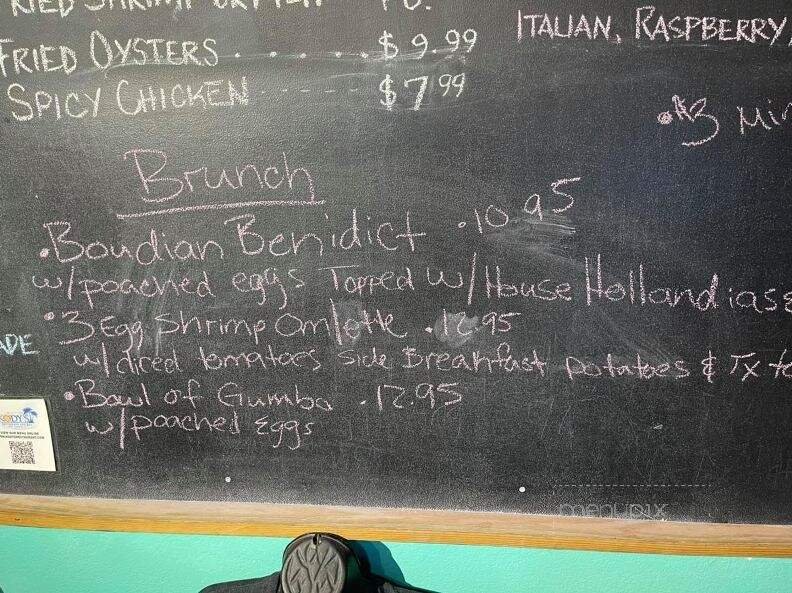 FRIED SHRIMP
ITALIAN, RASPBERRY,
FRIED OYSTERS . . . . . . . $9.99
SPICY CHICKEN - - - - $7.99
•$3 Mi
Brunch
•Boudian Benidict .10.95
w/poached eggs Topped w/House Hollandiase
•3 Egg Shrimp Omlette .12.95
w/ diced tomatoes side Breakfast potatoes & Tx to
ADE
•Bowl of Gumbo .12.95
w/poached Eggs
menupix